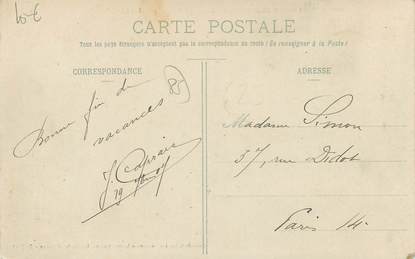 10€
CARTE POSTALE
Tous les pays étrangers n'acceptent pas la correspondance au recto (Se renseigner à la Poste)
CORRESPONDANCE
ADRESSE
Bonne fin de
vacances
J. Caprais
19
Madame Simon
37, rue Didot
Paris 14.